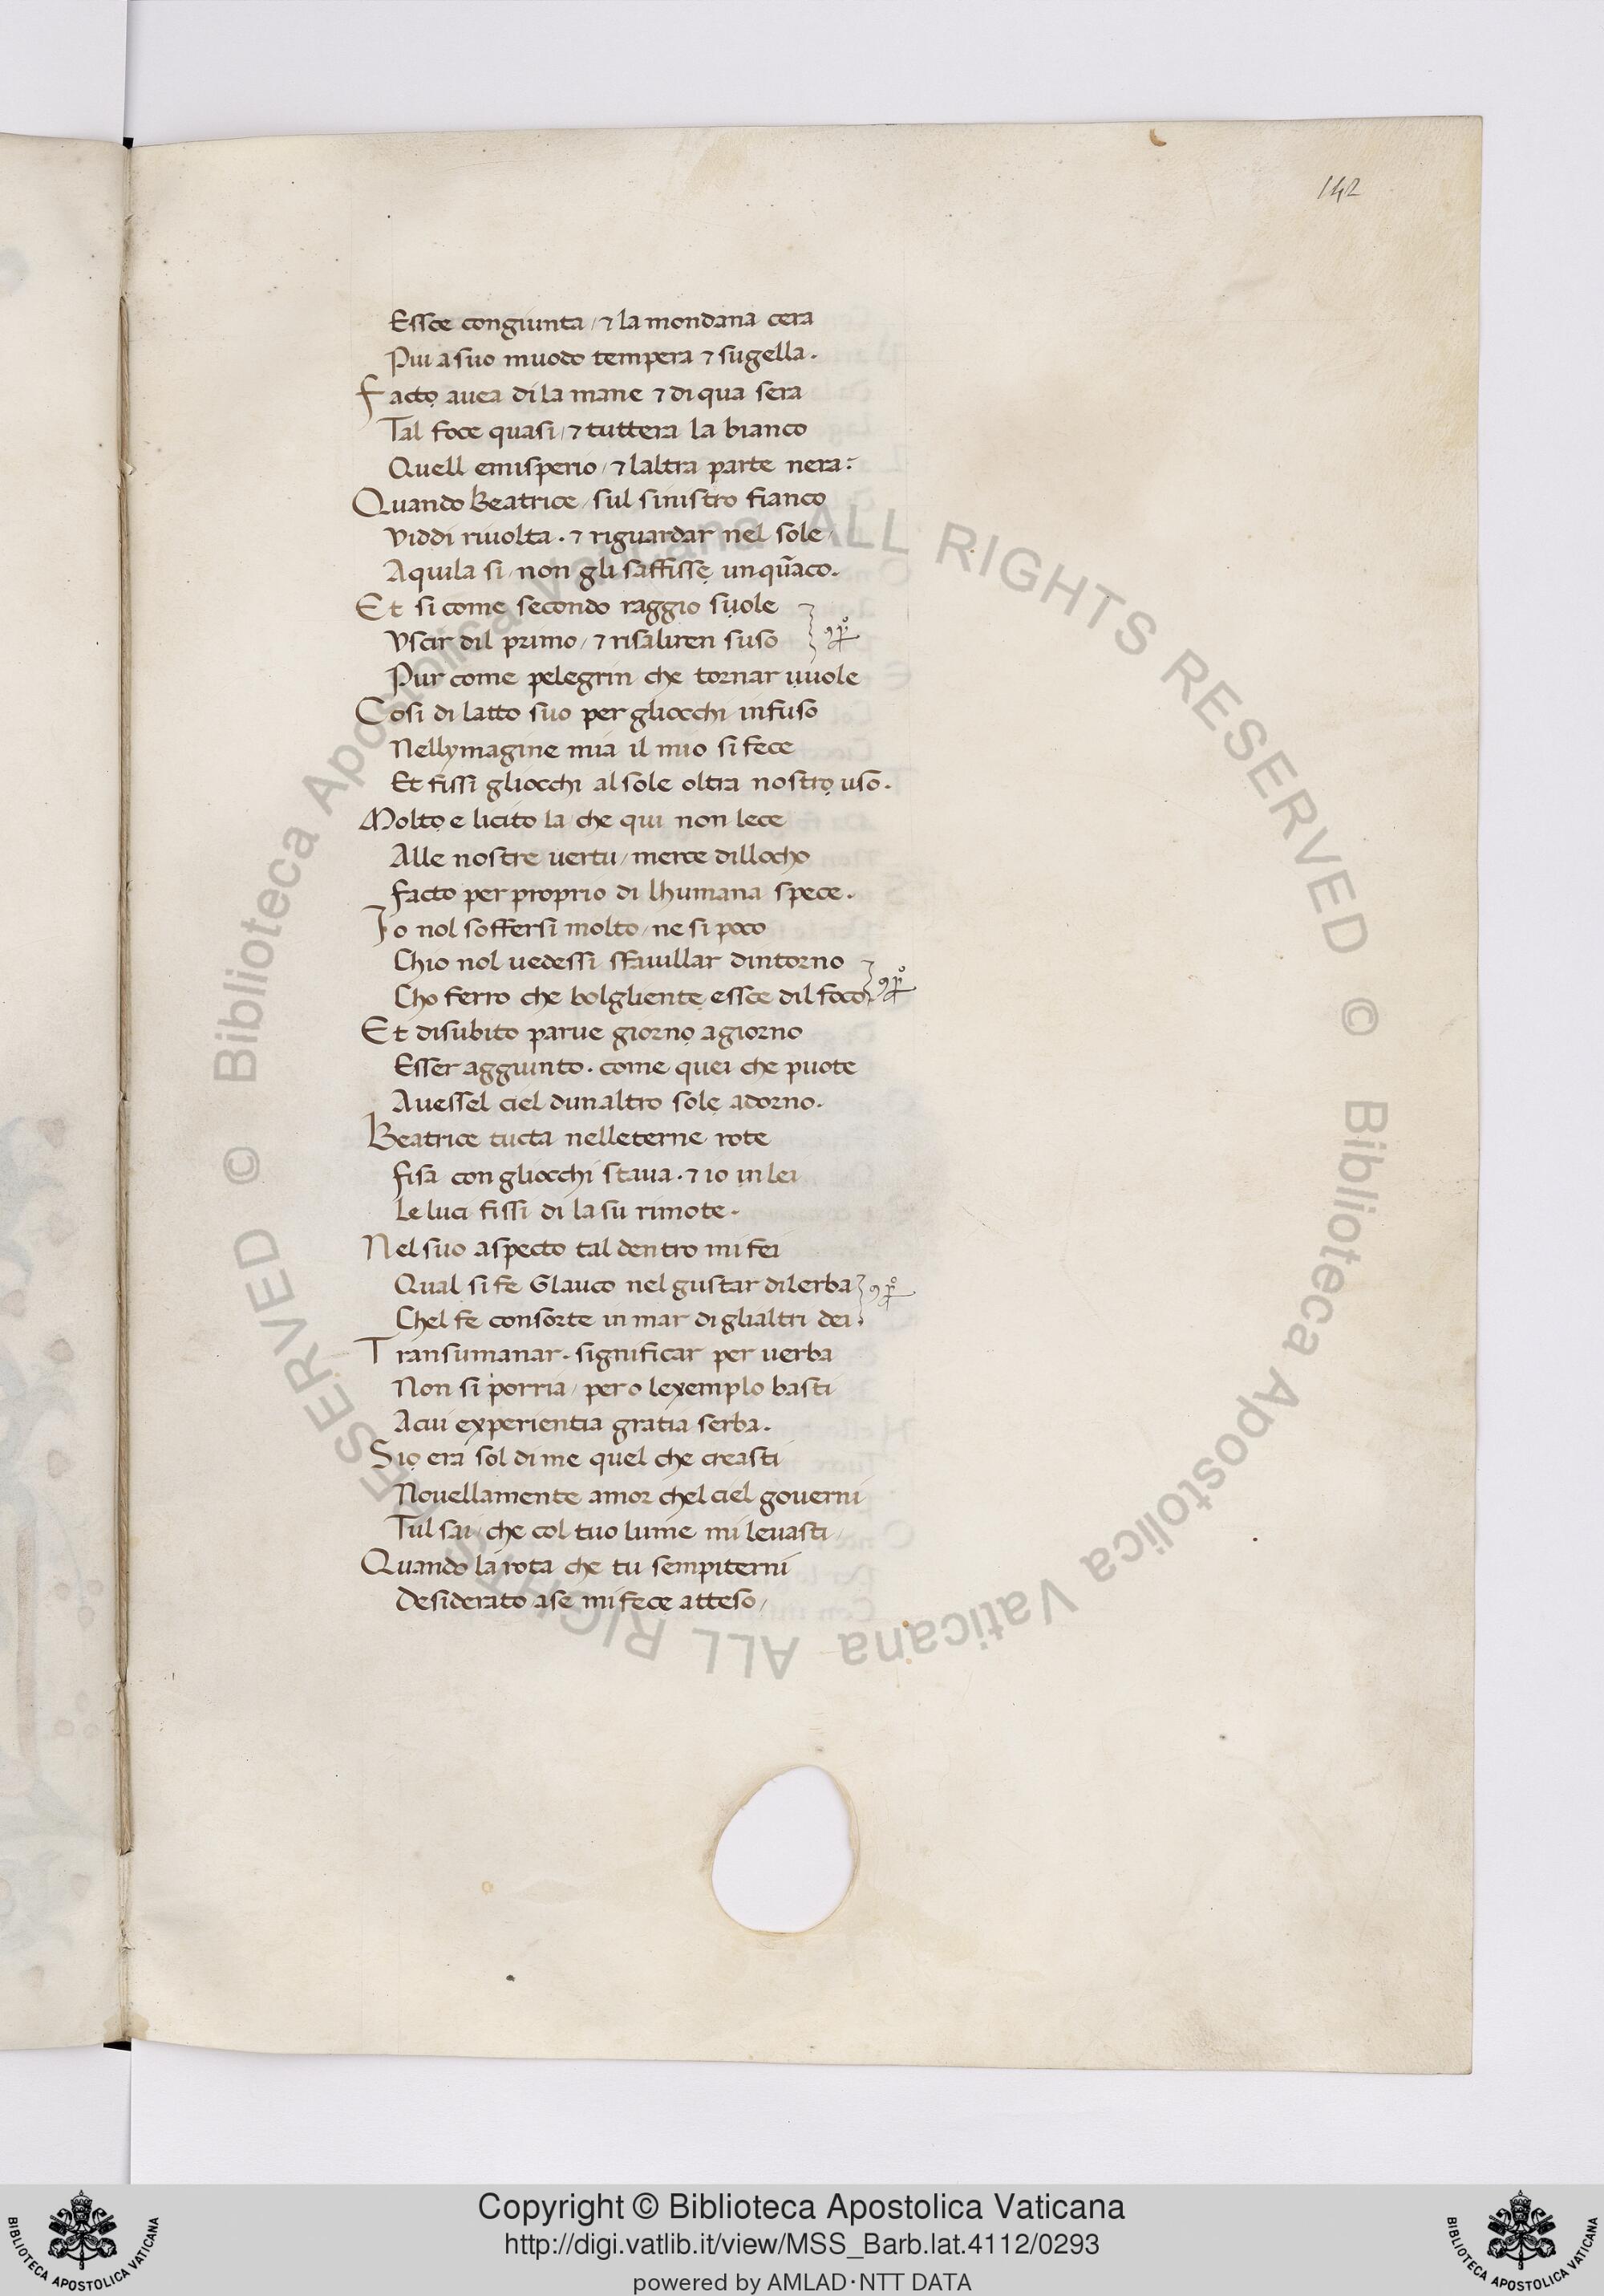 142
Essce congiunta / ⁊ la mondana cera
Piu a suo muodo tempera ⁊ sugella .
Facto auea di la mane ⁊ di qua sera
Tal foce quasi / ⁊ tuttera la bianco
Quell emisperio / ⁊ laltra parte nera :
Quando Beatrice / sul sinistro fianco
Viddi riuolta . ⁊ riguardar nel sole /
Aquila si / non gli saffissẹ unqũaco .
Et si come secondo raggio suole
Vscir dil primo / ⁊ risaliren suso
Pur come pelegrin che tornar uuole
Cosi di latto suo per gliocchi infuso
Nellymagine mia il mio si fece
Et fissi gliocchi al sole oltra nostrọ uso .
Moltọ e licito la che qui non lece
Alle nostre uertu / merce dillocho
facto per proprio di lhumana spece .
Io nol soffersi molto / ne si poco
Chio nol uedessi sfauillar dintorno
Cho ferro che bolglientẹ essce dil foco
Et disubito parue giornọ agiorno
Esser aggiunto . come quei che puote
Auessel ciel dunaltro solẹ adorno .
Beatrice tucta nelleterne rote
fisa con gliocchi staua . ⁊ io in lei
Le luci fissi di la su rimote .
Nel suo aspecto tal dentro mi fei
Qual si fe Glauco nel gustar dilerba
Chel fe consorte in mar di glialtri dei .
Transumanar . significar per uerba
Non si porria / pero lexemplo basti
Acui experientia gratia serba .
Siọ era sol di me quel che creasti
Nouellamente amor chel ciel gouerni
Tul sai / che col tuo lume mi leuasti /
Quando la rota che tu sempiterni
Desiderato ase mi fece atteso /
© Biblioteca Apostolica Vaticana ALL RIGHTS RESERVED
© Biblioteca Apostolica Vaticana ALL RIGHTS RESERVED
BIBLIOTECA APOSTOLICA VATICANA
Copyright © Biblioteca Apostolica Vaticana
http://digi.vatlib.it/view/MSS_Barb.lat.4112/0293
powered by AMLAD·NTT DATA
BIBLIOTECA APOSTOLICA VATICANA